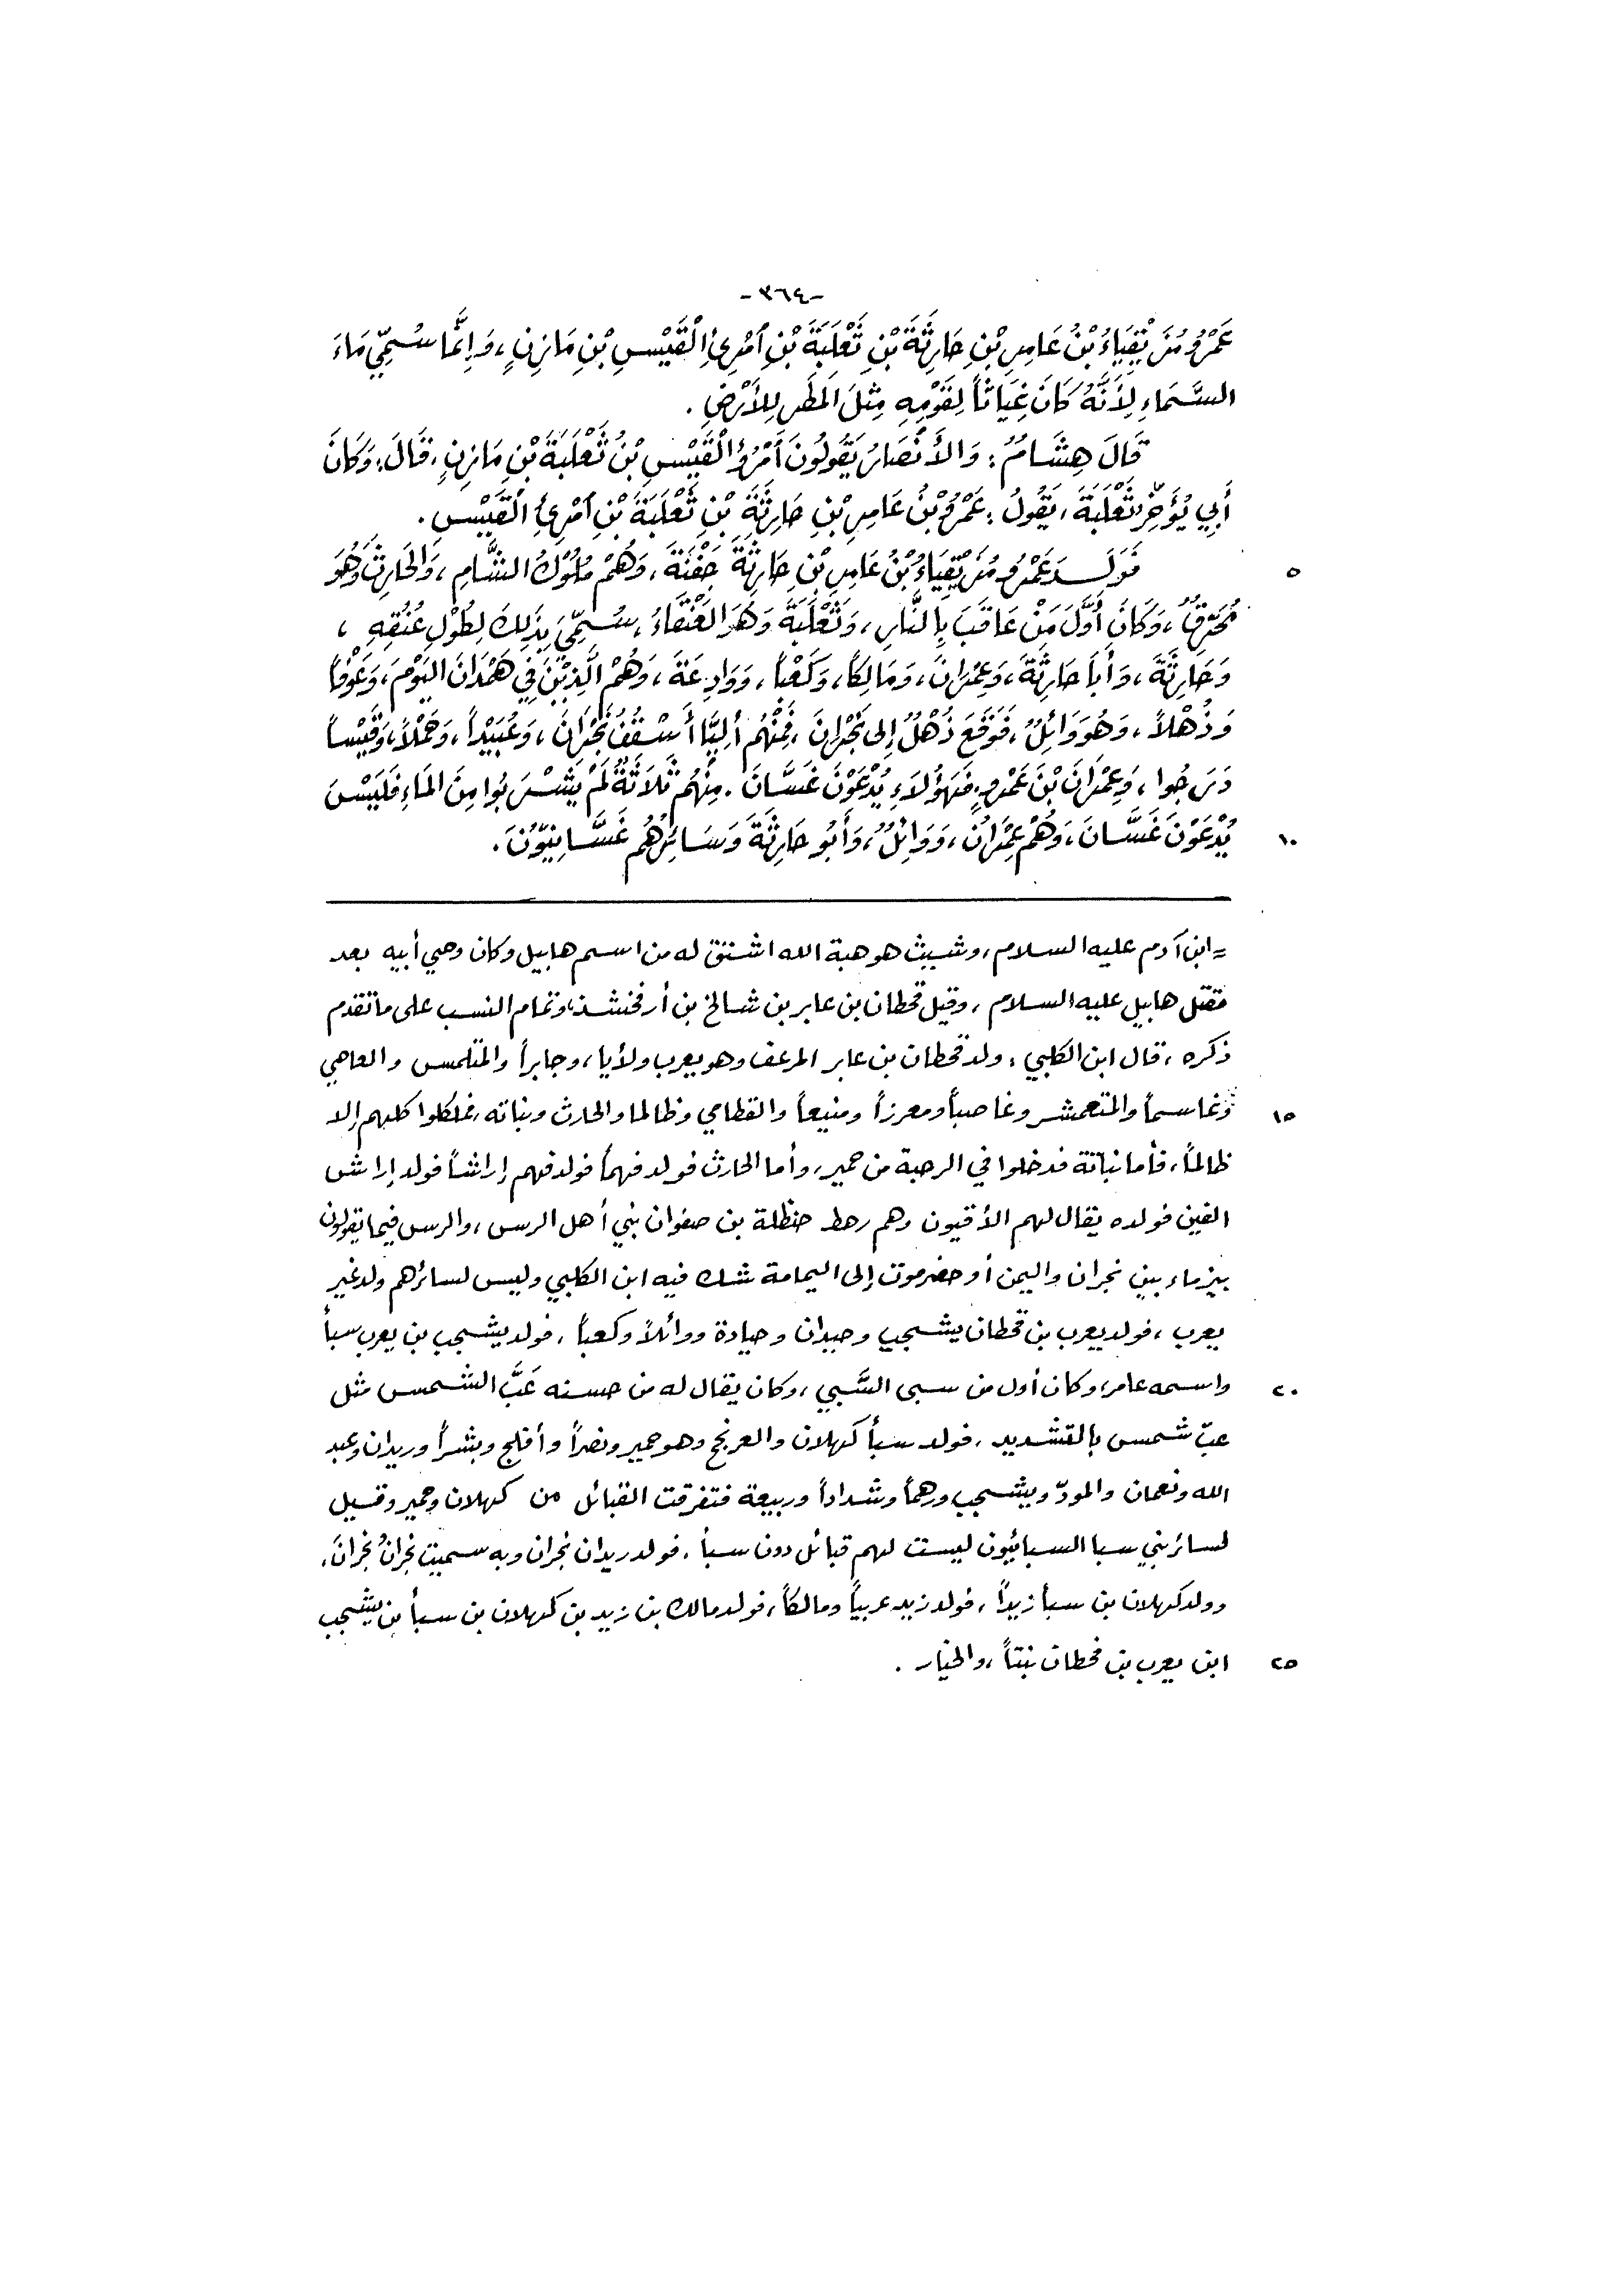 -٣٦٤-
عَمْرُو مُزَيْقِيَاءُ بْنُ عَامِرِ بْنِ حَارِثَةَ بْنِ ثَعْلَبَةَ بْنِ امْرِئِ الْقَيْسِ بْنِ مَازِنٍ، وَإِنَّمَا سُمِّيَ مَاءَ
السَّمَاءِ لِأَنَّهُ كَانَ غِيَاثاً لِقَوْمِهِ مِثْلَ المَطَرِ لِلأَرْضِ .
قَالَ هِشَامٌ : وَالأَنْصَارُ يَقُولُونَ امْرُؤُ الْقَيْسِ بْنُ ثَعْلَبَةَ بْنِ مَازِنٍ، قَالَ: وَكَانَ
أَبِي يُؤَخِّرُ ثَعْلَبَةَ، يَقُولُ : عَمْرُو بْنُ عَامِرِ بْنِ حَارِثَةَ بْنِ ثَعْلَبَةَ بْنِ امْرِئِ الْقَيْسِ .
٥ فَوَلَدَ عَمْرُو مُزَيْقِيَاءُ بْنُ عَامِرِ بْنِ حَارِثَةَ جَفْنَةَ، وَهُمْ مُلُوكُ الشَّامِ، وَالحَارِثَ وَهُوَ
مُحَرِّقٌ، وَكَانَ أَوَّلَ مَنْ عَاقَبَ بِالنَّارِ، وَثَعْلَبَةَ وَهُوَ العَنْقَاءُ، سُمِّيَ بِذَلِكَ لِطُولِ عُنُقِهِ ،
وَحَارِثَةَ، وَأَبَا حَارِثَةَ، وَعِمْرَانَ، وَمَالِكاً، وَكَعْباً، وَوَادِعَةَ، وَهُمْ الَّذِيْنَ فِي هَمْدَانَ اليَوْمَ، وَعَوْفاً
وَذُهْلاً، وَهُوَ وَائِلٌ، فَوَقَعَ ذُهْلٌ إِلى نَجْرَانَ، فَمِنْهُم أَلِيَّا أَسْقُفُ نَجْرَانَ، وَعُبَيْداً، وَحَمْلاً، وَقَيْساً
دَرَجُوا، وَعِمْرَانَ بْنَ عَمْرٍو، فَهَؤُلاَءِ يُدْعَوْنَ غَسَّانَ . مِنْهُم ثَلاَثَةٌ لَمْ يَشْرَبُوا مِنَ المَاءِ فَلَيْسَ
١٠ يُدْعَوْنَ غَسَّانَ، وَهُم عِمْرَانُ، وَوَائِلٌ، وَأَبُو حَارِثَةَ وَسَائِرُهُم غَسَّانِيّوُنَ .
= ابن آدم عليه السلام، وشيث هو هبة الله اشتق له من اسم هابيل وكان وصي أبيه بعد
مقتل هابيل عليه السلام، وقيل قحطان بن عابر بن شالخ بن أرفخشذ، وتمام النسب على ما تقدم
ذكره، قال ابن الكلبي : ولد قحطان بن عابر المرعف وهو يعرب ولأيا، وجابراً والمتلمس والعاصي
١٥ وغاسماً والمتعمشر وغاصباً ومعرزاً ومنيعاً والقطامي وظالما والحارث ونباته، فملكوا كلهم إلا
ظالماً، فأما نباتة فدخلوا في الرحبة من حمير، وأما الحارث فولد فهماً فولد فهم إراشاً فولد إراش
القين فولده يقال لهم الأقيون وهم رهط حنظلة بن صفوان بني أهل الرس، والرس فيما يقولون
بئر ماء بين نجران واليمن أو حضرموت إلى اليمامة شك فيه ابن الكلبي وليس لسائرهم ولد غير
يعرب، فولد يعرب بن قحطان يشجب وحيدان وحيادة ووائلاً وكعباً، فولد يشجب بن يعرب سبأ
٢٠ واسمه عامر، وكان أول من سبى السَّبي، وكان يقال له من حسنه عَبَّ الشمس مثل
عبّ شمس بالتشديد، فولد سبأ كهلان والعرنج وهو حمير ونصراً وأفلح وبشراً وريدان وعبد
الله ونعمان والمودّ ويشجب ورهماً وشداداً وربيعة فتفرقت القبائل من كهلان وحمير وقيل
لسائر بني سبا السبائيون ليست لهم قبائل دون سبأ، فولد ريدان نجران وبه سميت نجرانُ نجرانَ،
وولد كهلان بن سبأ زيداً، فولد زيد عربياً ومالكاً، فولد مالك بن زيد بن كهلان بن سبأ بن يشجب
٢٥ ابن يعرب بن قحطان نبتاً، والخيار .